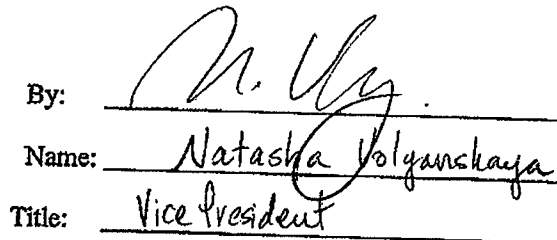 By: N. Vly.
Name: Natasha Volyanskaya
Title: Vice President